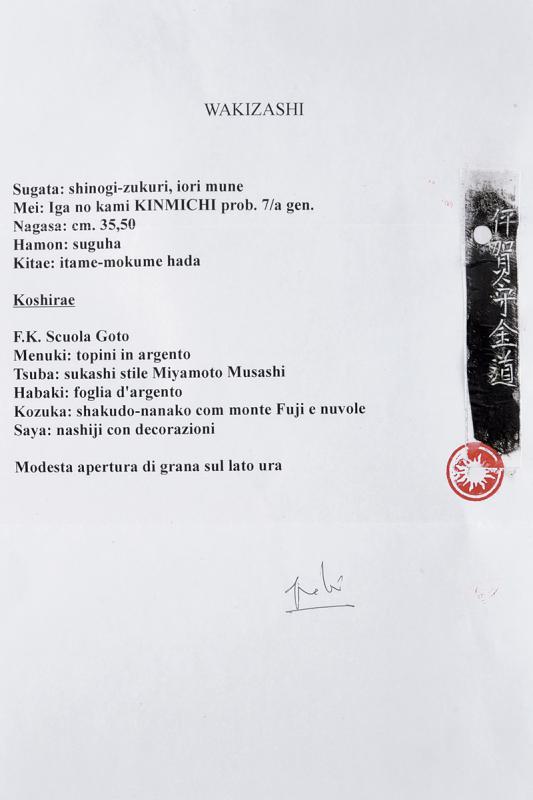 WAKIZASHI
Sugata: shinogi-zukuri, iori mune
Mei: Iga no kami KINMICHI prob. 7/a gen.
Nagasa: cm. 35,50
Hamon: suguha
Kitae: itame-mokume hada
Koshirae
F.K. Scuola Goto
Menuki: topini in argento
Tsuba: sukashi stile Miyamoto Musashi
Habaki: foglia d'argento
Kozuka: shakudo-nanako com monte Fuji e nuvole
Saya: nashiji con decorazioni
Modesta apertura di grana sul lato ura
伊賀守金道